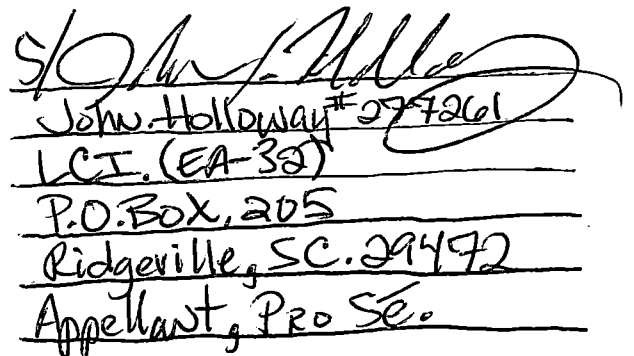 S/ John Holloway
John. Holloway #277261
LCI. (EA-32)
P.O.Box, 205
Ridgeville, SC. 29472
Appellant, Pro Sé.